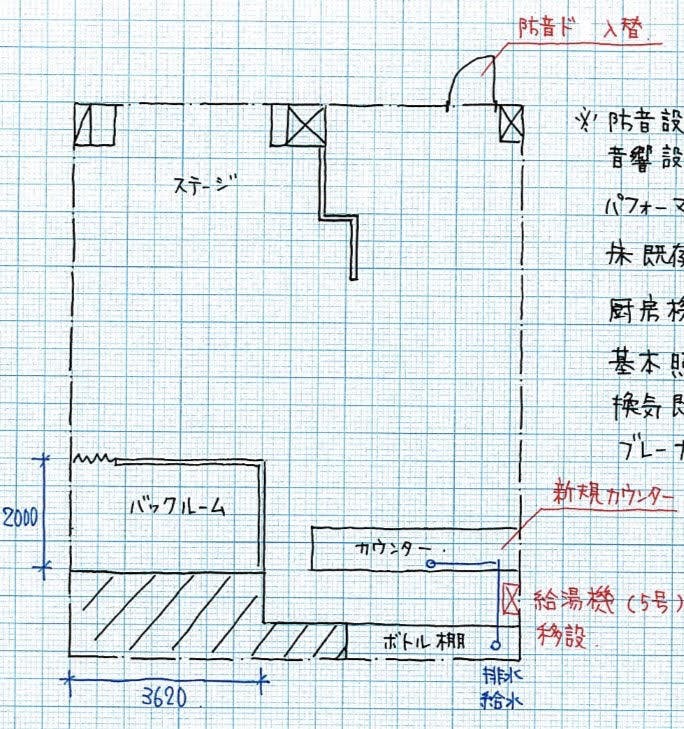 防音ド 入替
※ 防音設
音響設
ステージ
パフォーマ
床 既存
厨房移
基本照
換気既
ブレーカ
バックルーム
2000
新規カウンター
カウンター
給湯機(5号)
移設
ボトル棚
排水
給水
3620